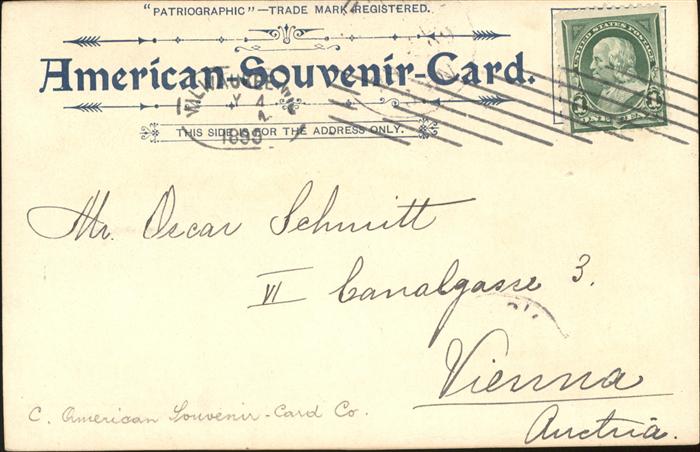 "PATRIOGRAPHIC"—TRADE MARK REGISTERED.
American-Souvenir-Card.
MILWAUKEE, WIS
4
1899
THIS SIDE IS FOR THE ADDRESS ONLY.
UNITED STATES POSTAGE
1 1
ONE CENT
Mr. Oscar Schmitt
VI Canalgasse 3.
Vienna
Austria.
C. American Souvenir-Card Co.